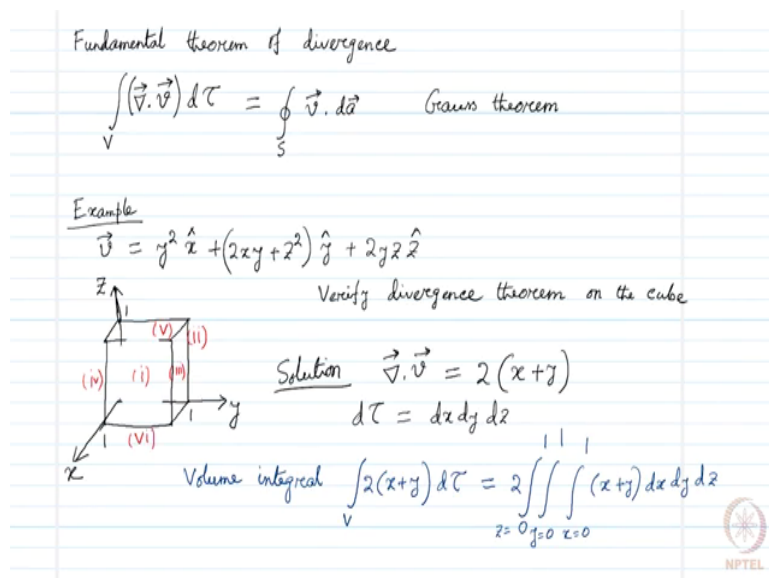 Fundamental theorem of divergence
∫_V (∇⃗.v⃗) dτ = ∮_S v⃗. da⃗ Gauss theorem
Example
v⃗ = y² x̂ + (2xy + z²) ŷ + 2yz ẑ
Verify divergence theorem on the cube
z 1 (V) (ii) (iv) (i) (iii) 1 y 1 (Vi) x
Solution ∇⃗.v⃗ = 2(x+y)
dτ = dx dy dz
Volume integral ∫_V 2(x+y) dτ = 2 ∫_{z=0}^{1} ∫_{y=0}^{1} ∫_{x=0}^{1} (x+y) dx dy dz
NPTEL